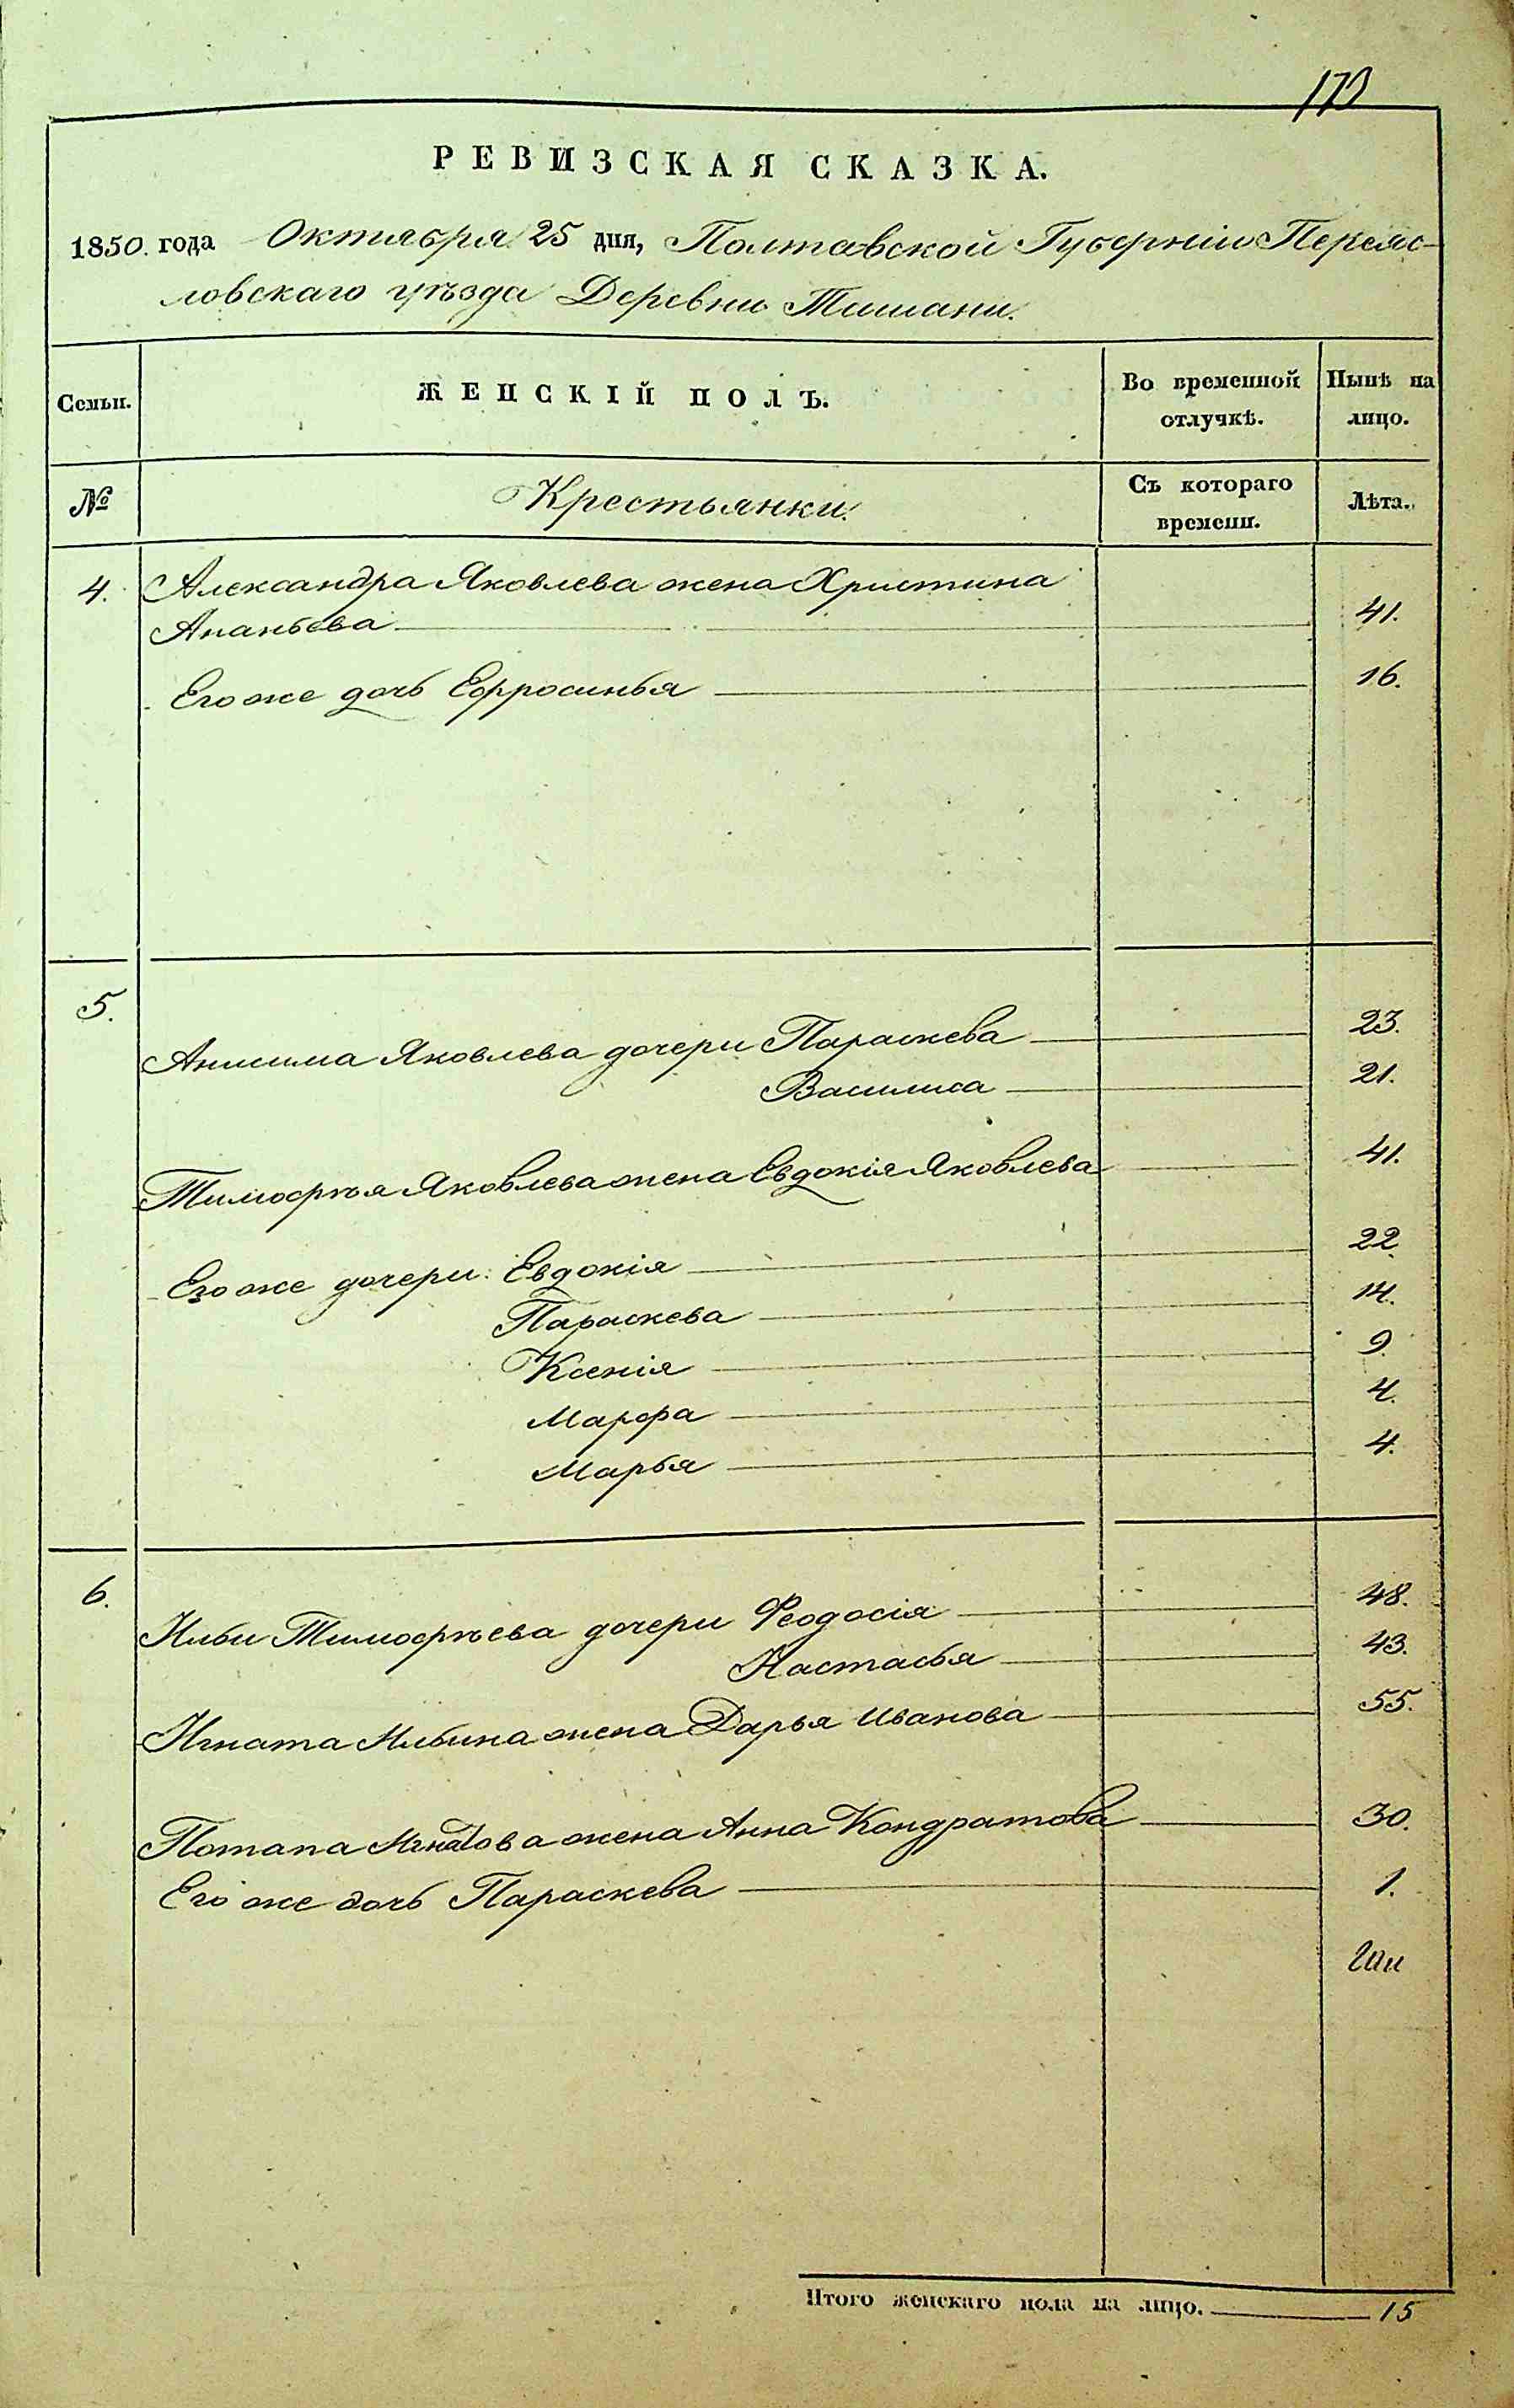 173
РЕВИЗСКАЯ СКАЗКА.
1850. года Октября 25 дня, Полтавской Губерніи Переяс-
ловскаго уѣзда Деревни Тишани.
Семьи. ЖЕНСКІЙ ПОЛЪ. Во временной отлучкѣ. Нынѣ на лицо.
№ Крестьянки. Съ котораго времени. Лѣта.
4. Александра Яковлева жена Христина
Ананьева 41.
Его же дочь Ефросинья 16.
5.
Анисима Яковлева дочери Параскева 23.
Василиса 21.
Тимофѣя Яковлева жена Евдокія Яковлева 41.
Его же дочери: Евдокія 22.
Параскева 14.
Ксенія 9.
Марфа 4.
Марья 4.
6.
Ильи Тимофѣева дочери Феодосія 48.
Настасья 43.
Игната Ильина жена Дарья Иванова 55.
Потапа Игнатова жена Анна Кондратова 30.
Его же дочь Параскева 1.
Итого женскаго пола на лицо. 15